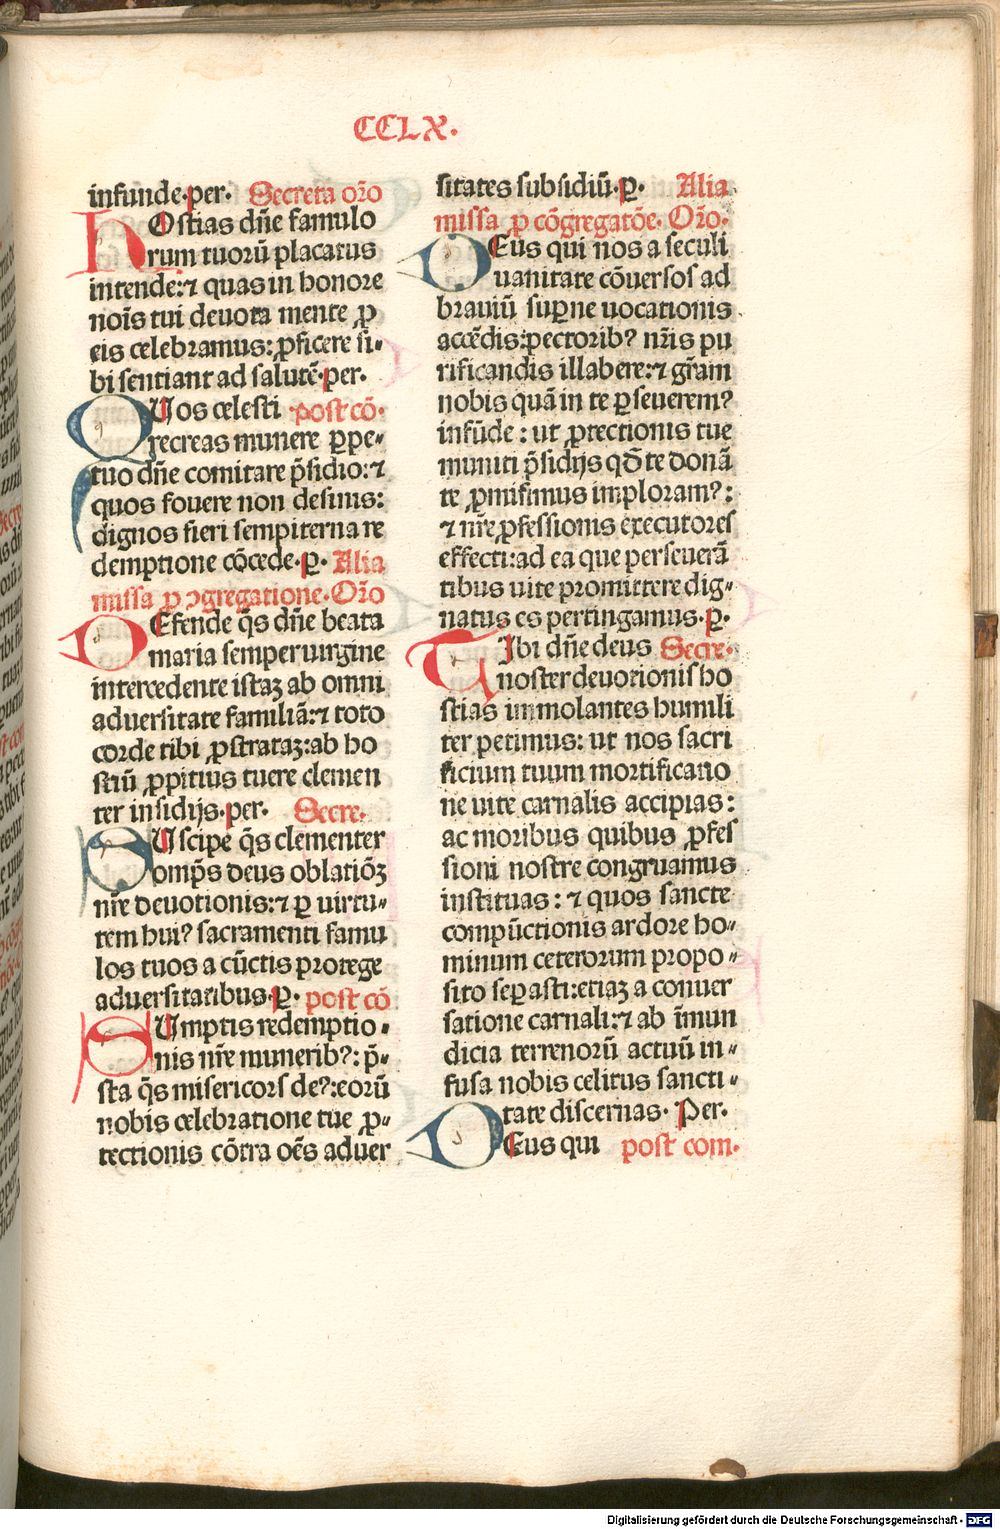 CCLX.
infunde.per. Secreta orō
HOstias dn̄e famulo
rum tuorū placatus
intende:⁊ quas in honore
nōis tui deuota mente ꝓ
eis celebramus: ꝓficere si-
bi sentiant ad salutē.per.
QUos celesti post cō.
recreas munere ꝑpe-
tuo dn̄e comitare p̄sidio:⁊
quos fouere non desinis:
dignos fieri sempiterna re
demptione cōcede.ꝑ. Alia
missa ꝓ ↄgregatione. Orō
DEfende q̄s dn̄e beata
maria semper uirgine
intercedente istaꝫ ab omni
aduersitate familiā:⁊ toto
corde tibi ꝓstrataꝫ:ab ho
stiū ꝓpitius tuere clemen
ter insidijs.per. Secre.
SUscipe q̄s clementer
omp̄s deus oblatiōꝫ
nr̄e deuotionis:⁊ ꝑ uirtu-
tem huiꝰ sacramenti famu
los tuos a cūctis protege
aduersitatibus.ꝑ. post cō
SUmptis redemptio-
nis nr̄e muneribꝰ: p̄-
sta q̄s misericors deꝰ:eorū
nobis celebratione tue ꝓ-
tectionis cōtra oēs aduer
sitates subsidiū.ꝑ. Alia
missa ꝓ cōgregatōe. Orō.
DEus qui nos a seculi
uanitate cōuersos ad
brauiū suꝑne uocationis
accēdis:pectoribꝰ nr̄is pu
rificandis illabere:⁊ gr̄am
nobis quā in te ꝑseueremꝰ
infūde: ut ꝓtectionis tue
muniti p̄sidijs qd̄ te donā
te ꝓmisimus imploramꝰ:
⁊ nr̄e ꝓfessionis executores
effecti:ad ea que perseuerā
tibus uite promittere dig-
natus es pertingamus.ꝑ.
TIbi dn̄e deus Secre.
noster deuotionis ho
stias immolantes humili
ter petimus: ut nos sacri
ficium tuum mortificatio
ne uite carnalis accipias:
ac moribus quibus ꝓfes
sioni nostre congruamus
instituas: ⁊ quos sancte
compūctionis ardore ho-
minum ceterorum propo-
sito seꝑasti:etiaꝫ a conuer
satione carnali:⁊ ab īmun
dicia terrenorū actuū in-
fusa nobis celitus sancti-
tate discernas. Per.
DEus qui post com.
Digitalisierung gefördert durch die Deutsche Forschungsgemeinschaft - DFG